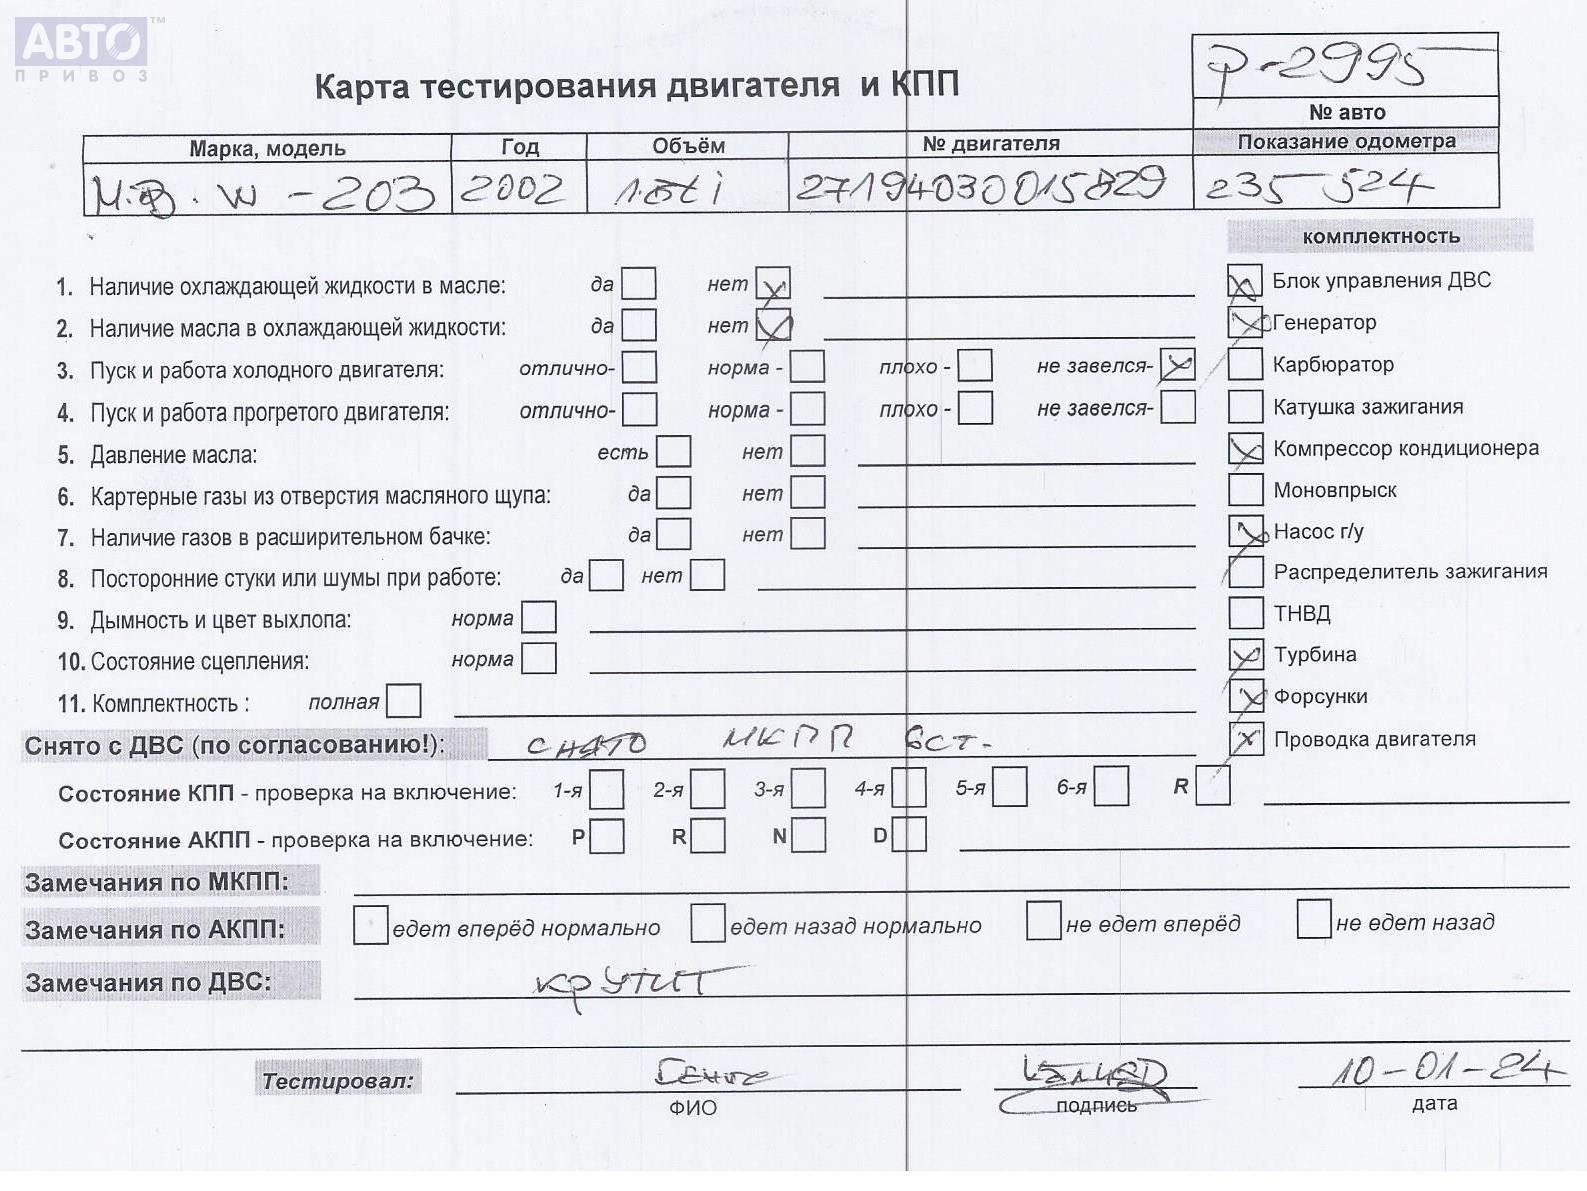 АВТО™
ПРИВОЗ
Р-2995
Карта тестирования двигателя и КПП
№ авто
Марка, модель Год Объём № двигателя Показание одометра
М.В. W-203 2002 1.8ti 27194030015829 235 524
комплектность
1. Наличие охлаждающей жидкости в масле: да нет
Блок управления ДВС
2. Наличие масла в охлаждающей жидкости: да нет
Генератор
3. Пуск и работа холодного двигателя: отлично- норма - плохо - не завелся-
Карбюратор
4. Пуск и работа прогретого двигателя: отлично- норма - плохо - не завелся-
Катушка зажигания
5. Давление масла: есть нет
Компрессор кондиционера
6. Картерные газы из отверстия масляного щупа: да нет
Моновпрыск
7. Наличие газов в расширительном бачке: да нет
Насос г/у
8. Посторонние стуки или шумы при работе: да нет
Распределитель зажигания
9. Дымность и цвет выхлопа: норма
ТНВД
10. Состояние сцепления: норма
Турбина
11. Комплектность : полная
Форсунки
Снято с ДВС (по согласованию!): снято МКПП 6ст.
Проводка двигателя
Состояние КПП - проверка на включение: 1-я 2-я 3-я 4-я 5-я 6-я R
Состояние АКПП - проверка на включение: P R N D
Замечания по МКПП:
Замечания по АКПП: едет вперёд нормально едет назад нормально не едет вперёд не едет назад
Замечания по ДВС: крутит
Тестировал: 10-01-24
ФИО подпись дата